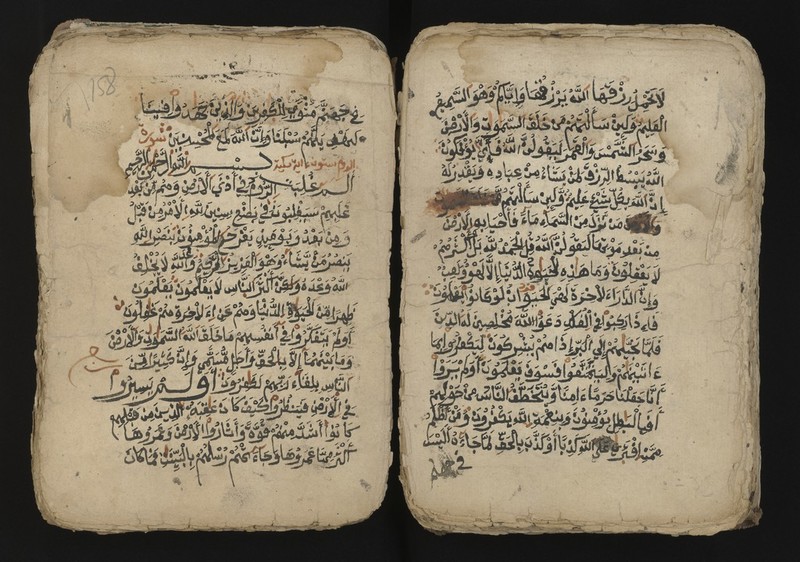 لا تحمل رزقها الله يرزقها وإياكم وهو السميع
العليم ولئن سألتهم من خلق السموات والأرض
وسخر الشمس والقمر ليقولن الله فأنى يؤفكون
الله يبسط الرزق لمن يشاء من عباده ويقدر له
إن الله بكل شيء عليم ولئن سألتهم
من نزل من السماء ماء فأحيا به الأرض
من بعد موتها ليقولن الله قل الحمد لله بل أكثرهم
لا يعقلون وما هذه الحيوة الدنيا إلا لهو ولعب
وإن الدار الآخرة لهي الحيوان لو كانوا يعلمون
فإذا ركبوا في الفلك دعوا الله مخلصين له الدين
فلما نجيهم إلى البر إذا هم يشركون ليكفروا بما
ءاتينهم وليتمتعوا فسوف يعلمون أولم يروا
أنا جعلنا حرما ءامنا ويتخطف الناس من حولهم
أفبالبطل يؤمنون وبنعمة الله يكفرون ومن أظلم
ممن افترى على الله كذبا أو كذب بالحق لما جاءه أليس
في جهنم
158
في جهنم مثوى للكفرين والذين جهدوا فينا
لنهدينهم سبلنا وإن الله لمع المحسنين سورة
الروم ستون ءاية مكية بسم الله الرحمن الرحيم
الم غلبت الروم في أدنى الأرض وهم من بعد
غلبهم سيغلبون في بضع سنين لله الأمر من قبل
ومن بعد ويومئذ يفرح المؤمنون بنصر الله
ينصر من يشاء وهو العزيز الرحيم وعد الله لا يخلف
الله وعده ولكن أكثر الناس لا يعلمون يعلمون
ظهرا من الحيوة الدنيا وهم عن الآخرة هم غفلون
أولم يتفكروا في أنفسهم ما خلق الله السموات والأرض
وما بينهما إلا بالحق وأجل مسمى وإن كثيرا من
الناس بلقاء ربهم لكفرون أولم يسيروا
في الأرض فينظروا كيف كان عقبة الذين من قبلهم
كانوا أشد منهم قوة وأثاروا الأرض وعمروها
أكثر مما عمروها وجاءتهم رسلهم بالبينت فما كان